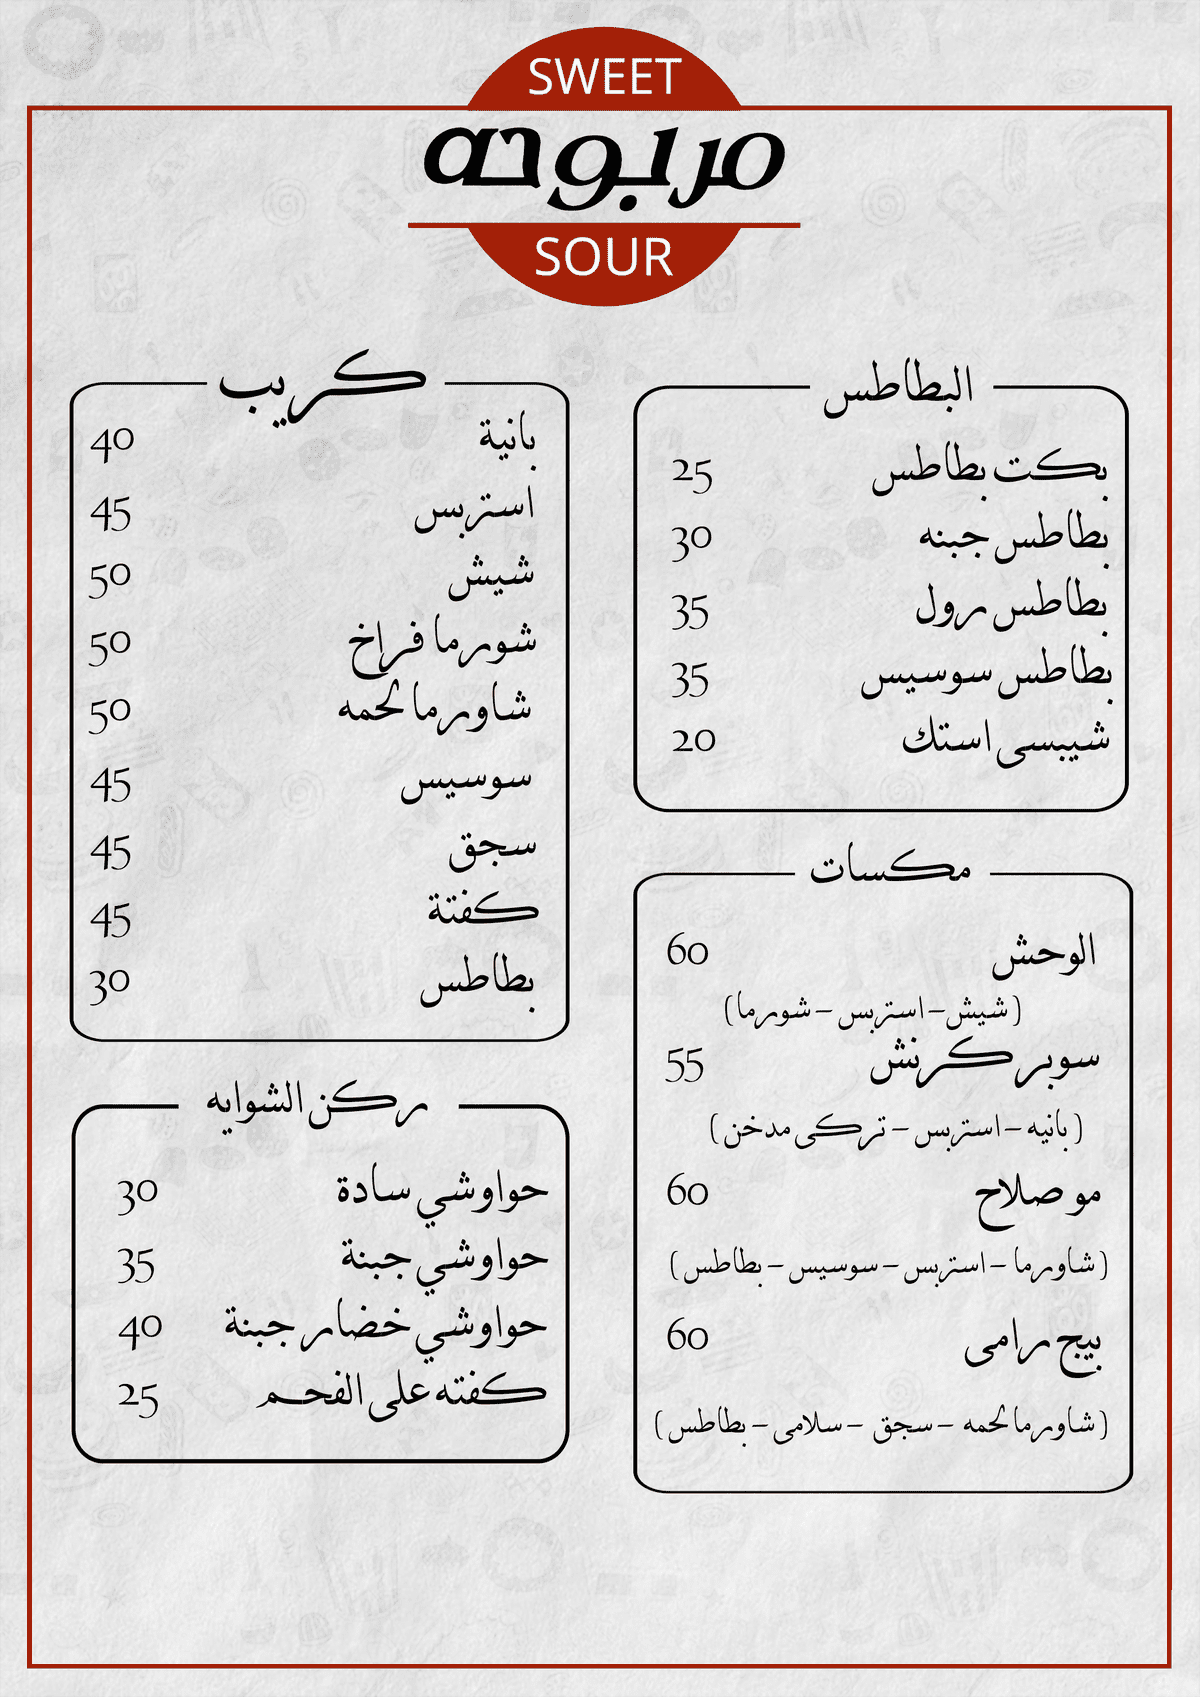 SWEET
مربوحه
SOUR
البطاطس
بكت بطاطس 25
بطاطس جبنه 30
بطاطس رول 35
بطاطس سوسيس 35
شيبسى استك 20
مكسات
الوحش 60
(شيش - استربس - شورما)
سوبر كرنش 55
(بانيه - استربس - تركى مدخن)
مو صلاح 60
(شاورما - استربس - سوسيس - بطاطس)
بيج رامى 60
(شاورما لحمه - سجق - سلامى - بطاطس)
كريب
بانية 40
استربس 45
شيش 50
شورما فراخ 50
شاورما لحمه 50
سوسيس 45
سجق 45
كفتة 45
بطاطس 30
ركن الشوايه
حواوشي سادة 30
حواوشي جبنة 35
حواوشي خضار جبنة 40
كفته على الفحم 25